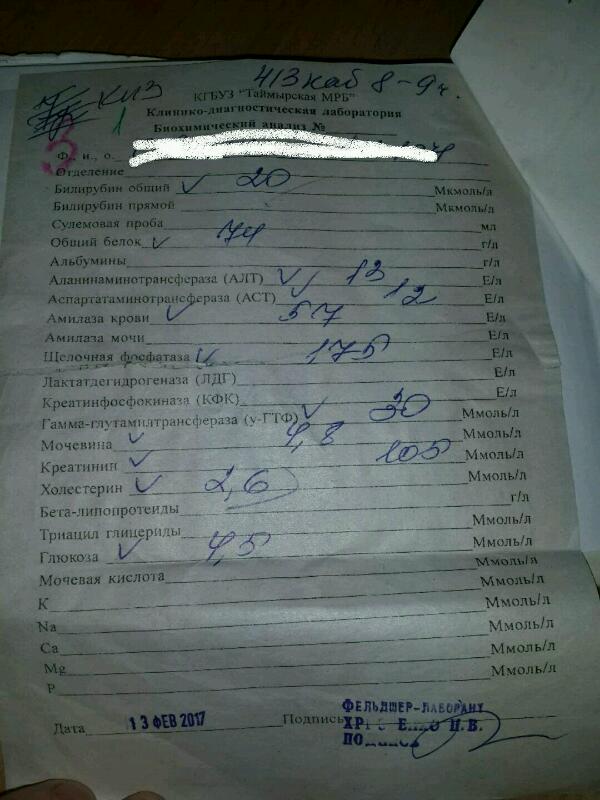 413 каб 8-9ч.
КИЗ
КГБУЗ "Таймырская МРБ"
Клинико-диагностическая лаборатория
Биохимический анализ №
3 1
Ф., и., о.
Отделение
Билирубин общий ✓ 20 Мкмоль/л
Билирубин прямой Мкмоль/л
Сулемовая проба мл
Общий белок ✓ 74 г/л
Альбумины г/л
Аланинаминотрансфераза (АЛТ) ✓ 13 Е/л
Аспартатаминотрансфераза (АСТ) ✓ 12 Е/л
Амилаза крови ✓ 57 Е/л
Амилаза мочи Е/л
Щелочная фосфатаза ✓ 175 Е/л
Лактатдегидрогеназа (ЛДГ) Е/л
Креатинфосфокиназа (КФК) Е/л
Гамма-глутамилтрансфераза (у-ГТФ) ✓ 30 Ммоль/л
Мочевина ✓ 4,8 Ммоль/л
Креатинин ✓ 105 Ммоль/л
Холестерин ✓ 2,6 Ммоль/л
Бета-липопротеиды г/л
Триацил глицериды Ммоль/л
Глюкоза ✓ 4,5 Ммоль/л
Мочевая кислота Ммоль/л
К Ммоль/л
Na Ммоль/л
Ca Ммоль/л
Mg Ммоль/л
P Ммоль/л
Дата 13 ФЕВ 2017 Подпись ФЕЛЬДШЕР-ЛАБОРАНТ
Н.В.